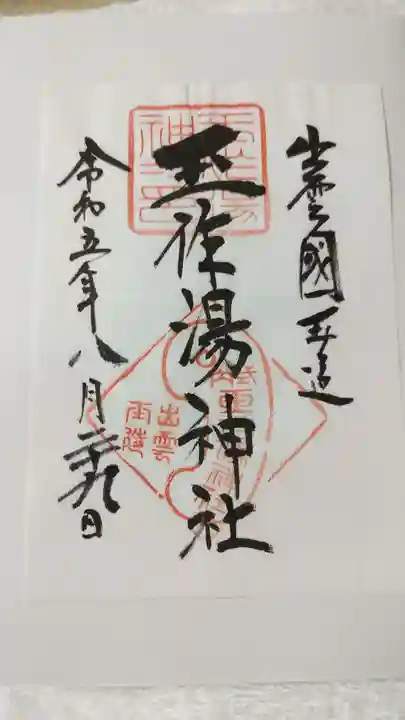 出雲國玉造
玉作湯神社
令和五年八月二十九日
玉作湯神社之印
出雲
玉造